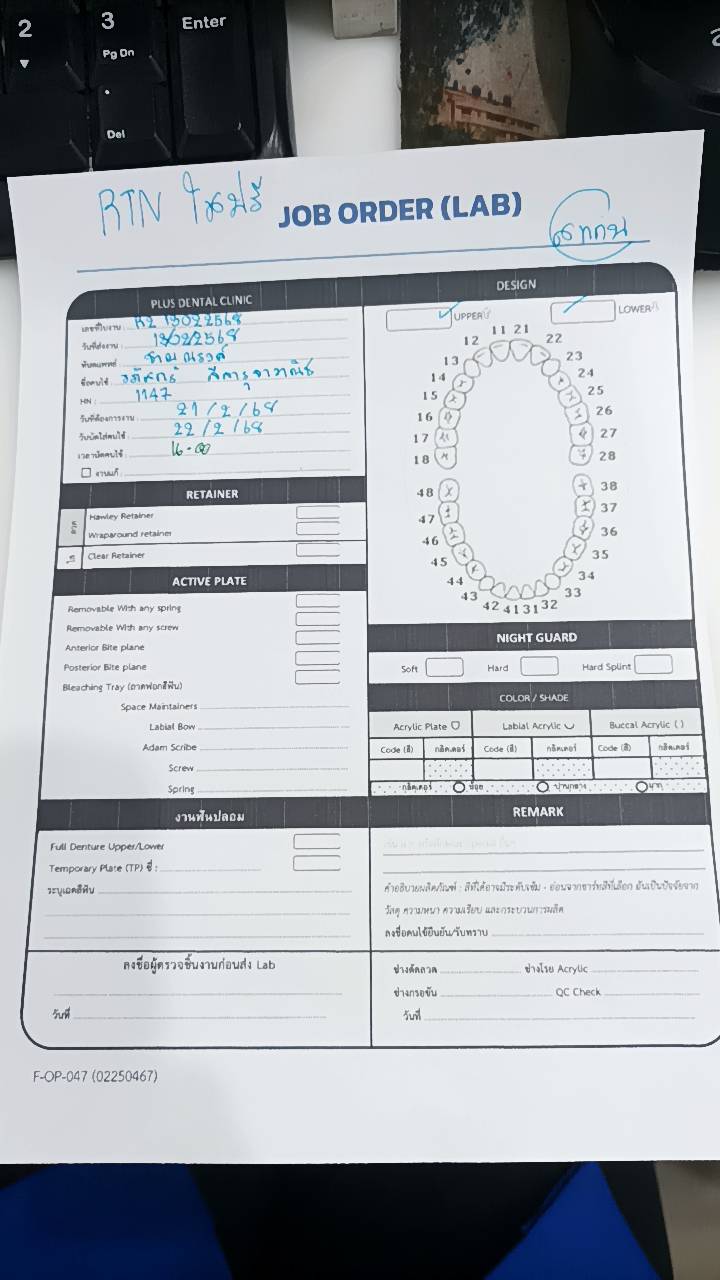 2
3
Enter
Pg Dn
Del
RTN
JOB ORDER (LAB)
PLUS DENTAL CLINIC
เลขที่ใบงาน : R2 13022568
วันที่ส่งงาน : 13022568
ทันตแพทย์
ชื่อคนไข้ :
HN : 1147
วันที่ต้องการงาน : 21/2/68
วันนัดใส่คนไข้ : 22/2/68
เวลานัดคนไข้ : 16-00
งานแก้
RETAINER
ลวด
Hawley Retainer
Wraparound retainer
ใส
Clear Retainer
ACTIVE PLATE
Removable With any spring
Removable With any screw
Anterior Bite plane
Posterior Bite plane
Bleaching Tray (ถาดฟอกสีฟัน)
Space Maintainers
Labial Bow
Adam Scribe
Screw
Spring
งานฟันปลอม
Full Denture Upper/Lower
Temporary Plate (TP) ซี่ :
ระบุเฉดสีฟัน
ลงชื่อผู้ตรวจชิ้นงานก่อนส่ง Lab
วันที่
DESIGN
UPPER
LOWER
11 21
12 22
13 23
14 24
15 25
16 26
17 27
18 28
48 38
47 37
46 36
45 35
44 34
43 33
42 41 31 32
NIGHT GUARD
Soft Hard Hard Splint
COLOR / SHADE
Acrylic Plate Labial Acrylic Buccal Acrylic ( )
Code (สี) กลิตเตอร์ Code (สี) กลิตเตอร์ Code (สี) กลิตเตอร์
กลิตเตอร์ น้อย ปานกลาง มาก
REMARK
คำอธิบายผลิตภัณฑ์ : สีที่ได้อาจมีระดับเข้ม - อ่อนจากชาร์ทสีที่เลือก อันเป็นปัจจัยจาก
วัสดุ ความหนา ความเรียบ และกระบวนการผลิต
ลงชื่อคนไข้ยืนยัน/รับทราบ
ช่างดัดลวด ช่างโรย Acrylic
ช่างกรอขัด QC Check
วันที่
F-OP-047 (02250467)